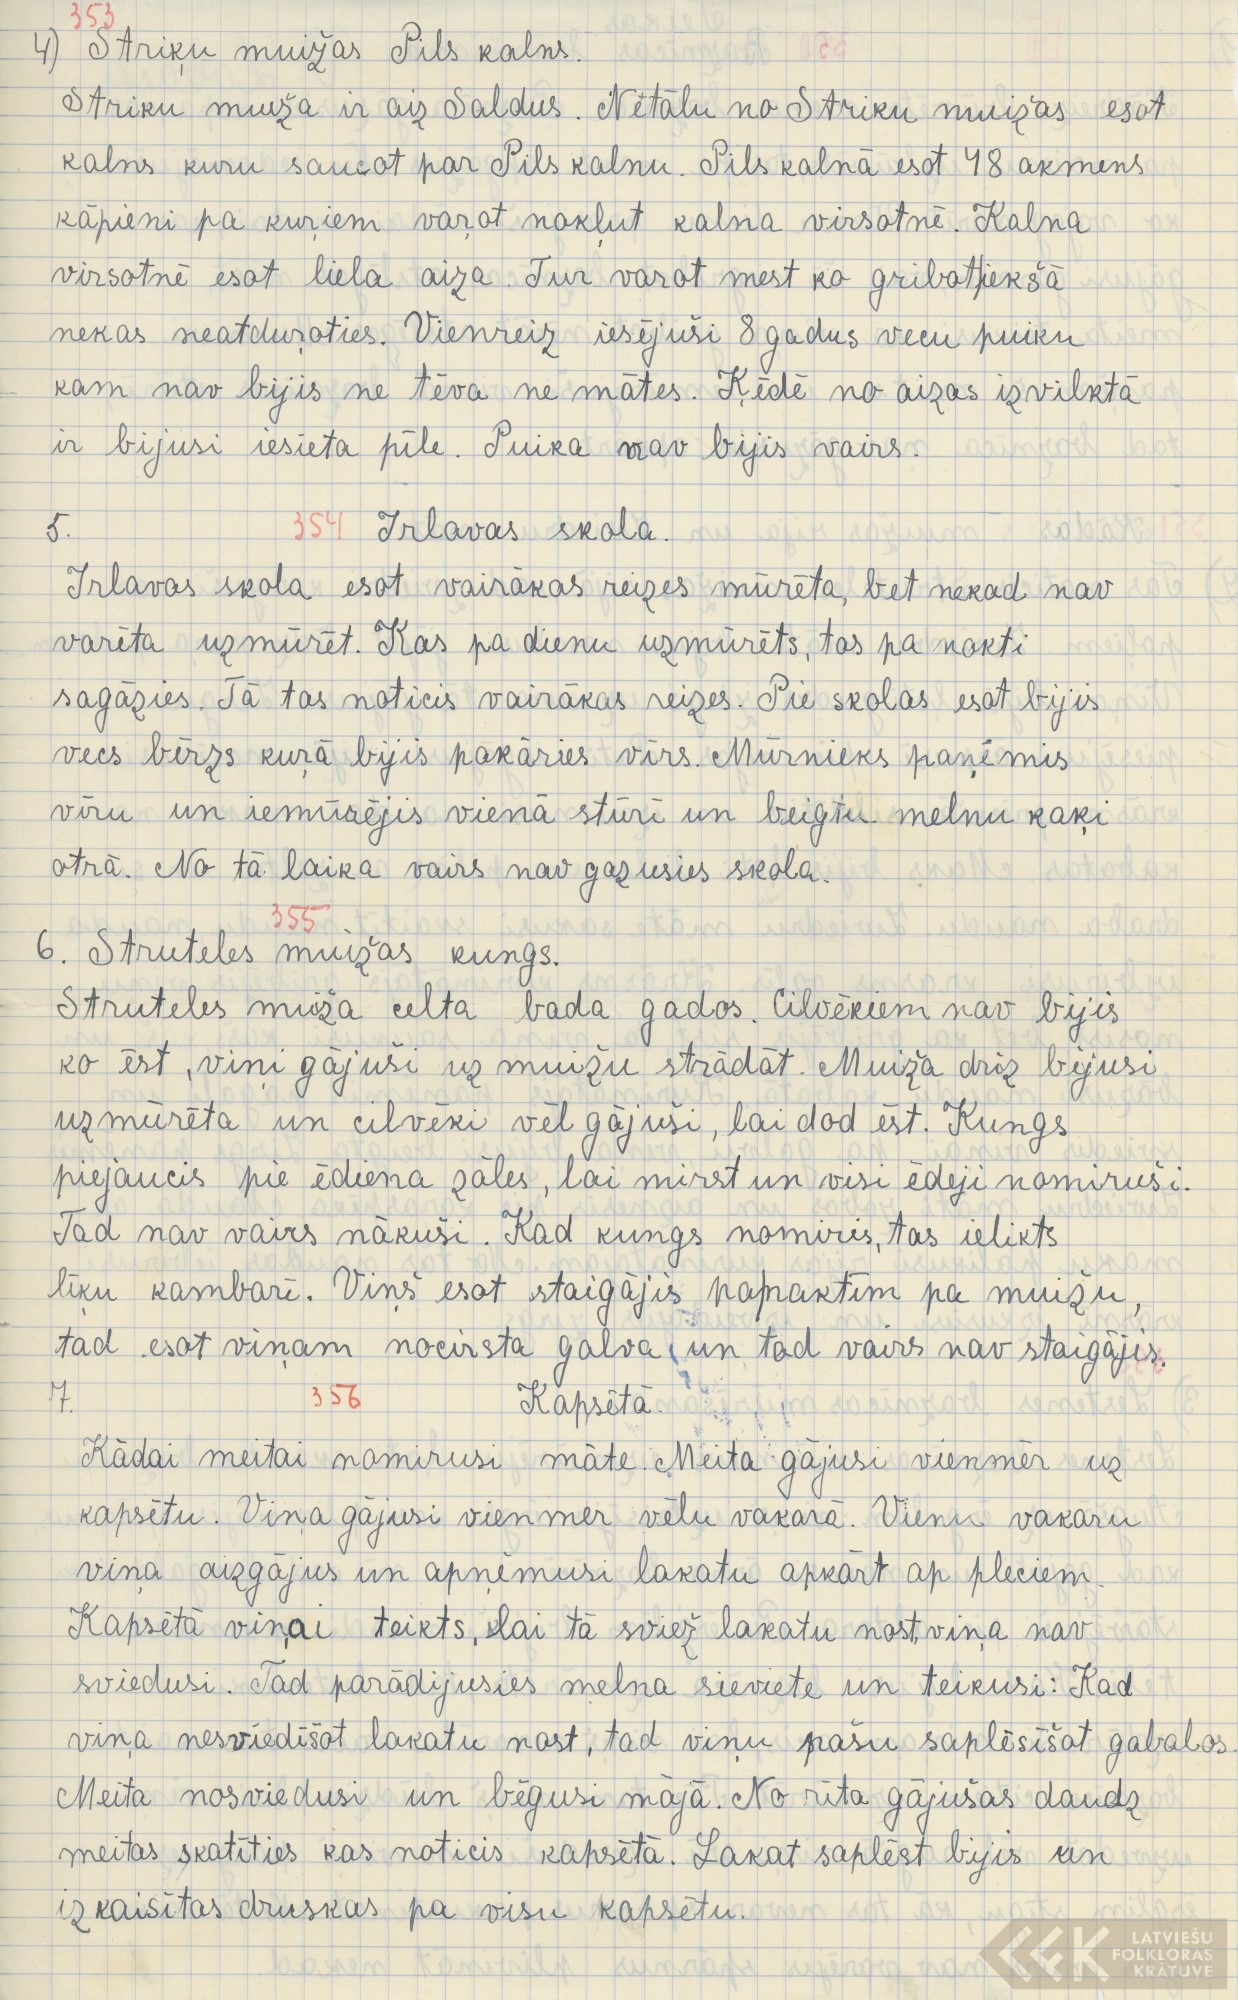 353
4) Striķu muižas Pils kalns.
Striku muiža ir aiz Saldus. Nētālu no Striku muižas esot
kalns kuru saucot par Pils kalnu. Pils kalnā esot 48 akmens
kāpieni pa kuŗiem vaŗot nokļut kalna virsotnē. Kalna
virsotnē esot liela aiza. Tur varot mest ko gribot iekšā
nekas neatduŗoties. Vienreiz iesējuši 8 gadus vecu puiku
kam nav bijis ne tēva ne mātes. Ķēdē no aizas izvilktā
ir bijusi iesieta pīle. Puika nav bijis vairs.
5. 354 Irlavas skola.
Irlavas skola esot vairākas reizes mūrēta, bet nekad nav
varēta uzmūrēt. Kas pa dienu uzmūrēts, tas pa nakti
sagāzies. Tā tas noticis vairākas reizes. Pie skolas esot bijis
vecs bērzs kuŗā bijis pakāries vīrs. Mūrnieks paņēmis
vīru un iemūrējis vienā stūrī un beigtu melnu kaķi
otrā. No tā laika vairs nav gazusies skola.
355
6. Struteles muižas kungs.
Struteles muiža celta bada gados. Cilvēkiem nav bijis
ko ēst, viņi gājuši uz muižu strādāt. Muiža drīz bijusi
uzmūrēta un cilvēki vēl gājuši, lai dod ēst. Kungs
piejaucis pie ēdiena zāles, lai mirst un visi ēdeji nomiruši.
Tad nav vairs nākuši. Kad kungs nomiris, tas ielikts
līķu kambarī. Viņš esot staigājis pa naktīm pa muižu,
tad esot viņam nocirsta galva un tad vairs nav staigājis.
7. 356 Kapsētā.
Kādai meitai nomirusi māte. Meita gājusi vienmēr uz
kapsētu. Viņa gājusi vienmēr vēlu vakarā. Vienu vakaru
viņa aizgājus un apņēmusi lakatu apkārt ap pleciem.
Kapsētā viņai teikts, lai tā sviež lakatu nost, viņa nav
sviedusi. Tad parādijusies melna sieviete un teikusi: Kad
viņa nesviedīšot lakatu nost, tad viņu pašu saplēsīšot gabalos.
Meita nosviedusi un bēgusi mājā. No rīta gājušas daudz
meitas skatīties kas noticis kapsētā. Lakat saplēst bijis un
izkaisītas druskas pa visu kapsētu.
LATVIEŠU
FOLKLORAS
KRĀTUVE